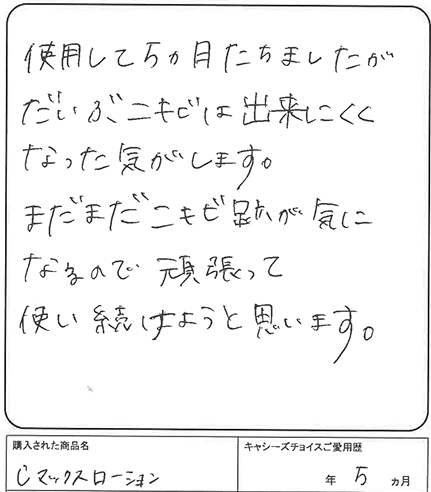 使用して5ヵ月たちましたが
だいぶニキビは出来にくく
なった気がします。
まだまだニキビ跡が気に
なるので頑張って
使い続けようと思います。
購入された商品名
キャシーズチョイスご愛用歴
Cマックスローション
年 5 ヵ月